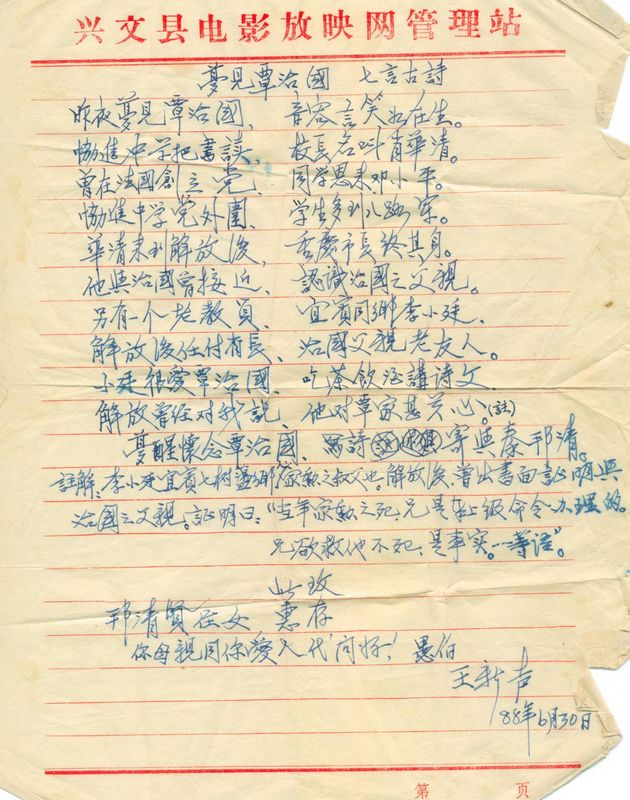 兴文县电影放映网管理站
夢見覃治國 七言古詩
昨夜夢見覃治國, 音容言笑如在生。
協進中学把書读, 校長名叫肖華清。
曾在法國創立党、 同学恩来邓小平。
協進中学党外圍、 学生多到八路军。
華清来到解放後, 重慶市長終其身。
他與治國曾接近、 認識治國之父親。
另有一个老教員、 宜賓同鄉李小廷、
解放後任付省長、 治國父親老友人。
小廷很爱覃治國、 吃茶飲酒講诗文、
解放曾经对我説、 他对覃家甚关心。(註)
夢醒懷念覃治國、 寫詩 寄與秦邦清。
註解、李小廷宜賓七树 鄉 家勛之叔父也。解放後、曾出書面証明與
治國之父親。証明曰:“当年家勛之死、兄是 上级命令办理的。
兄欲救他不死、是事实。……等语”。
此致
邦清賢侄女 惠存
你母親同你愛人代问好! 愚伯
王新声
88年6月30日
第 页